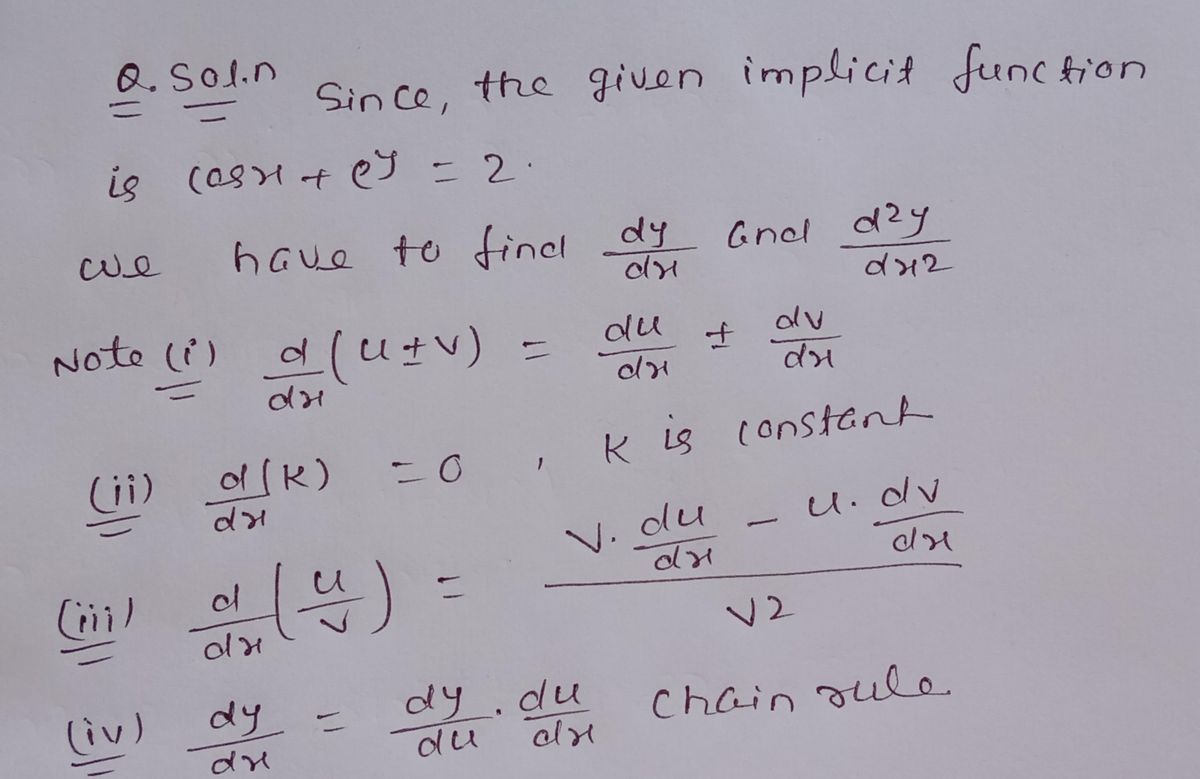 Q. Sol.n Since, the given implicit function
is cosx + e^y = 2.
we have to find dy/dx and d2y/dx2
Note (i) d/dx (u ± v) = du/dx ± dv/dx
(ii) d/dx (K) = 0 , K is constant
(iii) d/dx (u/v) = (v. du/dx - u. dv/dx)/v2
(iv) dy/dx = dy/du . du/dx chain rule